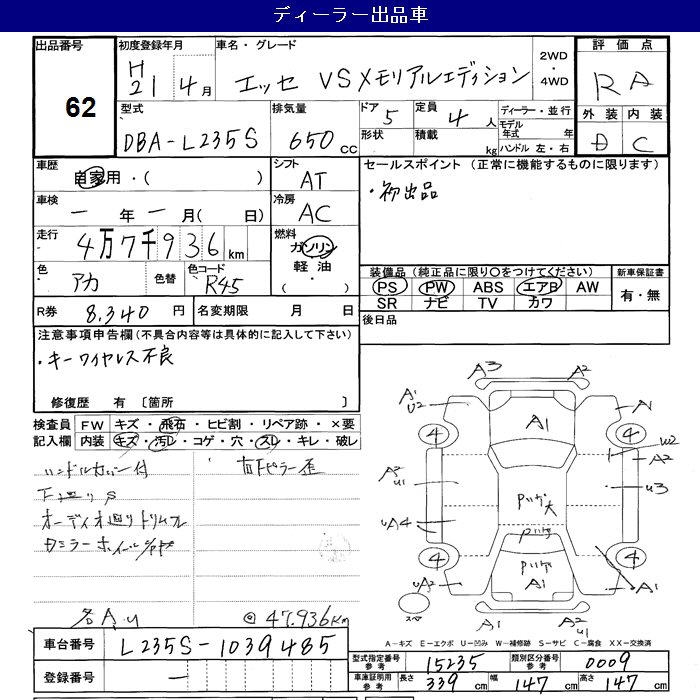 ディーラー出品車
出品番号 62
初度登録年月 H21 4月
車名・グレード エッセ VSメモリアルエディション
2WD・4WD
評価点 RA
外装 内装
D C
型式 DBA-L235S
排気量 650cc
ドア 5 形状
定員 4人 積載 kg
ディーラー・並行
モデル年式 年
ハンドル 左・右
車歴 自家用・( )
シフト AT
セールスポイント (正常に機能するものに限ります)
・初出品
車検 一年一月( 日)
冷房 AC
走行 4万7千936km
燃料 ガソリン
軽油
・( )
色 アカ 色替
色コード R45
装備品 (純正品に限り○をつけてください)
新車保証書
PS PW ABS エアB AW
SR ナビ TV カワ
有・無
R券 8,340円
名変期限 月 日
後日品
注意事項申告欄 (不具合内容等は具体的に記入して下さい)
・キーワイヤレス不良
修復歴 有 〔箇所 〕
検査員記入欄
FW キズ・飛石・ヒビ割・リペア跡・×要
内装 キズ・汚レ・コゲ・穴・スレ・キレ・破レ
ハンドルカバー付
オーディオ廻りトリムスレ
各A.U
@47,936km
A3 A2
A1 U2
A1
A
4 4
W2 A2
A2 U1
U3
UA4
4 4
A1
UA2
A1
スペア
A1 A2 U1
A-キズ E-エクボ U-凹み W-補修跡 S-サビ C-腐食 XX-交換済
車台番号 L235S-1039485
登録番号 ー
型式指定番号 参考 15235
類別区分番号 参考 0009
車庫証明用 参考 長さ 339cm 幅 147cm 高さ 147cm